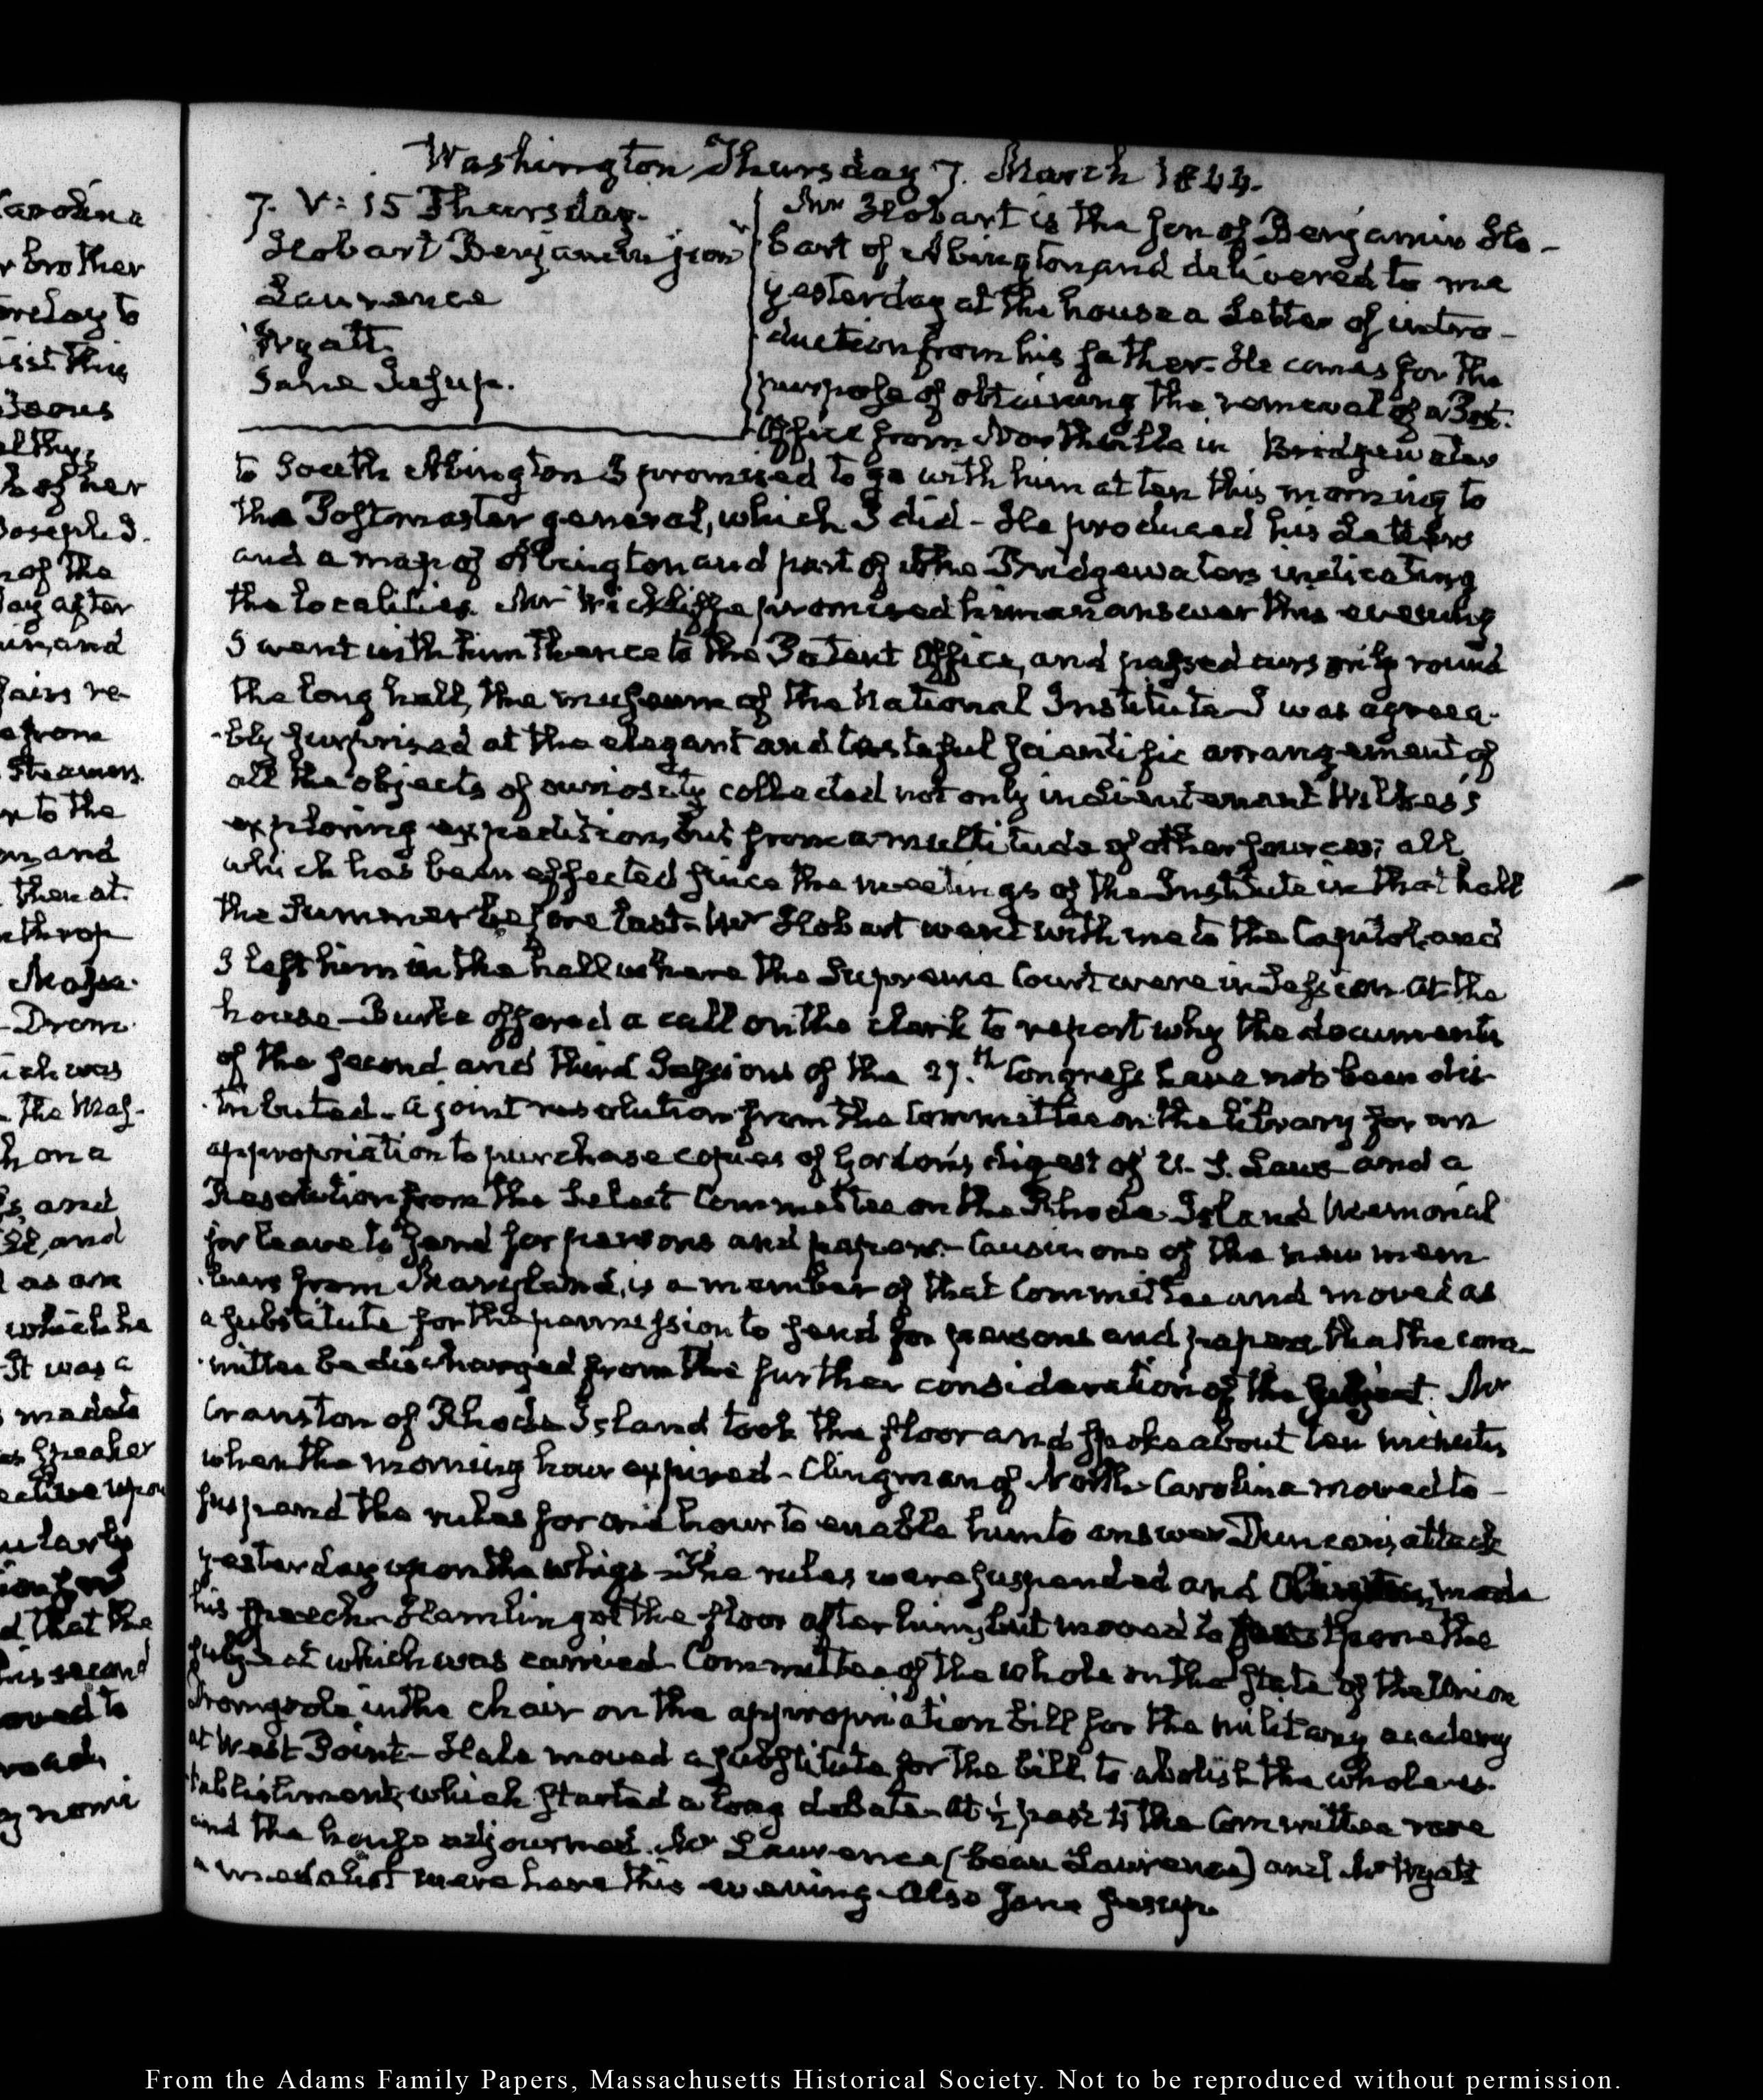 Washington Thursday 7. March 1844.
7. V: 15 Thursday.
Hobart Benjamin junr
Laurence
Wyatt.
Jane Jesup.
Mr Hobart is the son of Benjamin Ho-
bart of Abington, and delivered to me
yesterday at the house a Letter of intro-
duction from his father. He comes for the
purpose of obtaining the removal of a Post.
Office from Northville in Bridgewater
to South Abington I promised to go with him at ten this morning to
the Postmaster general, which I did - He produced his Letters
and a map of Abington and part of the Bridgewaters indicating
the localities. Mr Wickliffe promised him an answer this evening
I went with him thence to the Patent Office, and passed cursorily round
the long hall, the museum of the National Institute I was agreea-
bly surprised at the elegant and tasteful scientific arrangement of
all the objects of curiosity collected not only in Lieutenant Wilkes's
exploring expedition, but from a multitude of other sources; all
which has been effected since the meetings of the Institute in that hall
the Summer before last - Mr Hobart went with me to the Capitol, and
I left him in the hall where the Supreme Court were in Session. At the
house - Burke offered a call on the clerk to report why the documents
of the second and third Sessions of the 27.th Congress have not been dis-
tributed - A joint resolution from the Committee on the library for an
appropriation to purchase copies of Gordon's digest of U. S. Laws - and a
Resolution from the Select Committee on the Rhode-Island Memorial
for leave to send for persons and papers - Causin one of the new mem-
bers from Maryland, is a member of that Committee and moved as
a substitute for the permission to send for persons and papers, that the com-
mittee be discharged from the further consideration of the subject. Mr
Cranston of Rhode Island took the floor and spoke about ten minutes
when the morning hour expired - Clingman of North-Carolina moved to -
suspend the rules for one hour to enable him to answer Duncan's attack
yesterday upon the whigs - The rules were suspended and Clingman made
his speech - Hamlin got the floor after him, but moved to postpone the
subject which was carried - Committee of the whole on the state of the Union
Dromgoole in the chair on the appropriation bill for the military academy
at West Point - Hale moved a substitute for the bill to abolish the whole es-
tablishment, which started a long debate - At ½ past 4 the Committee rose
and the house adjourned. Mr Laurence (beau Laurence) and Mr Wyatt
a medalist were here this evening - Also Jane Jesup.
From the Adams Family Papers, Massachusetts Historical Society. Not to be reproduced without permission.